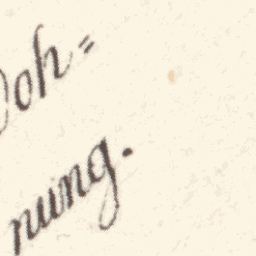 oh=
nung.